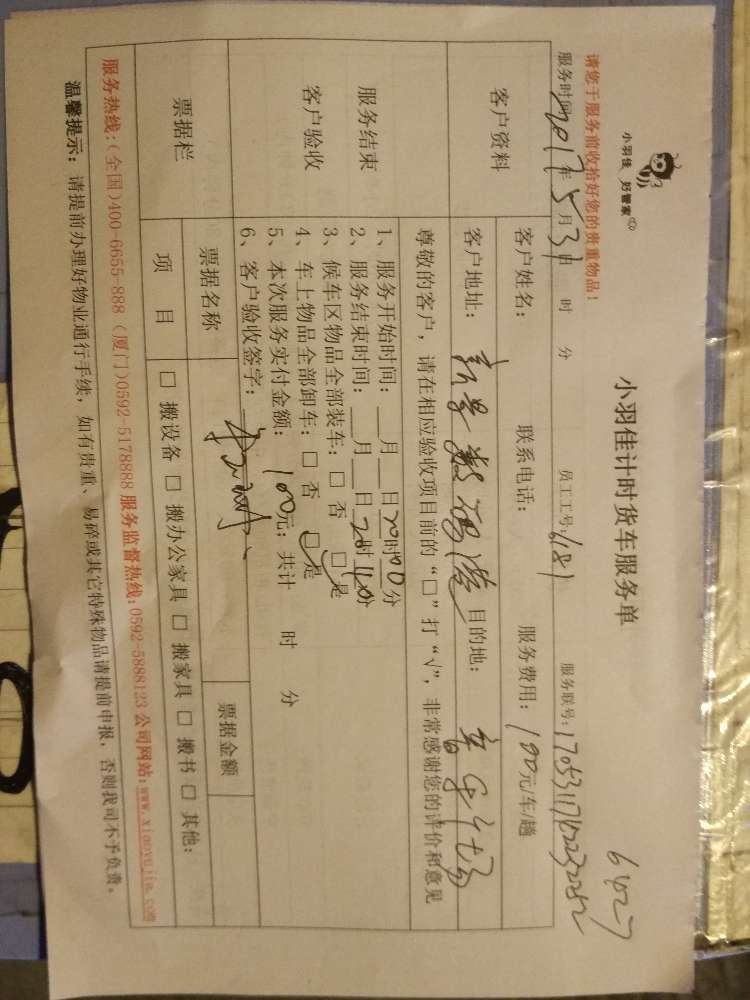 小羽佳 好管家
小羽佳计时货车服务单
64027
请您于服务前收拾好您的贵重物品！
服务时间：2017年5月31日 时 分 员工工号：6181 服务联号：
客户资料
客户姓名： 联系电话： 服务费用：100元/车/趟
客户地址： 数码港 目的地：
服务结束
客户验收
尊敬的客户，请在相应验收项目前的“□”打“√”，非常感谢您的评价和意见
1、服务开始时间：__月__日20时00分
2、服务结束时间：__月__日21时10分
3、候车区物品全部装车：□ 否 □是
4、车上物品全部卸车：□ 否 □是
5、本次服务实付金额：100元；共计 时 分
6、客户验收签字：
票据栏
票据名称 票据金额
项 目 □ 搬设备 □ 搬办公家具 □ 搬家具 □ 搬书 □ 其他：
服务热线：(全国)400-6655-888 (厦门)0592-5178888 服务监督热线：0592-5888123 公司网站：www.xiaoyujia.com
温馨提示：请提前办理好物业通行手续，如有贵重、易碎或其它特殊物品请提前申报，否则我司不予负责。